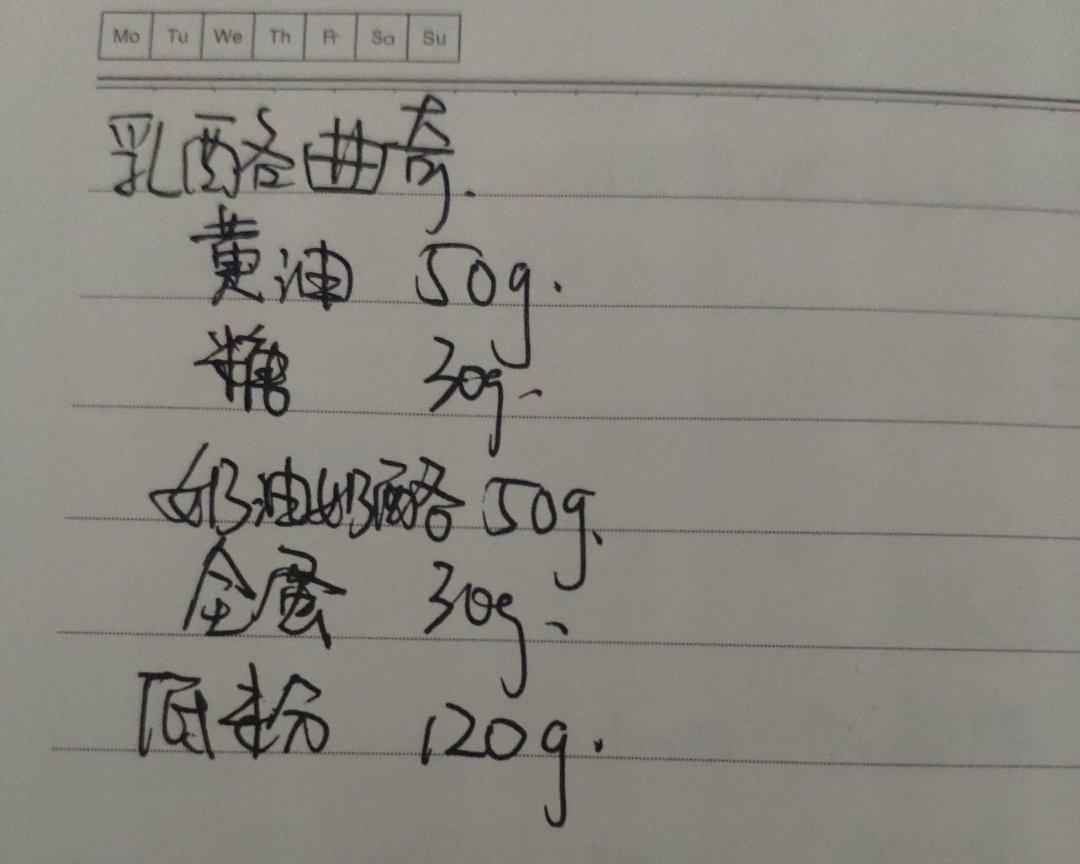 Mo Tu We Th Fr Sa Su
乳酪曲奇.
黄油 50g.
糖 30g.
奶油奶酪 50g、
全蛋 30g、
低粉 120g.